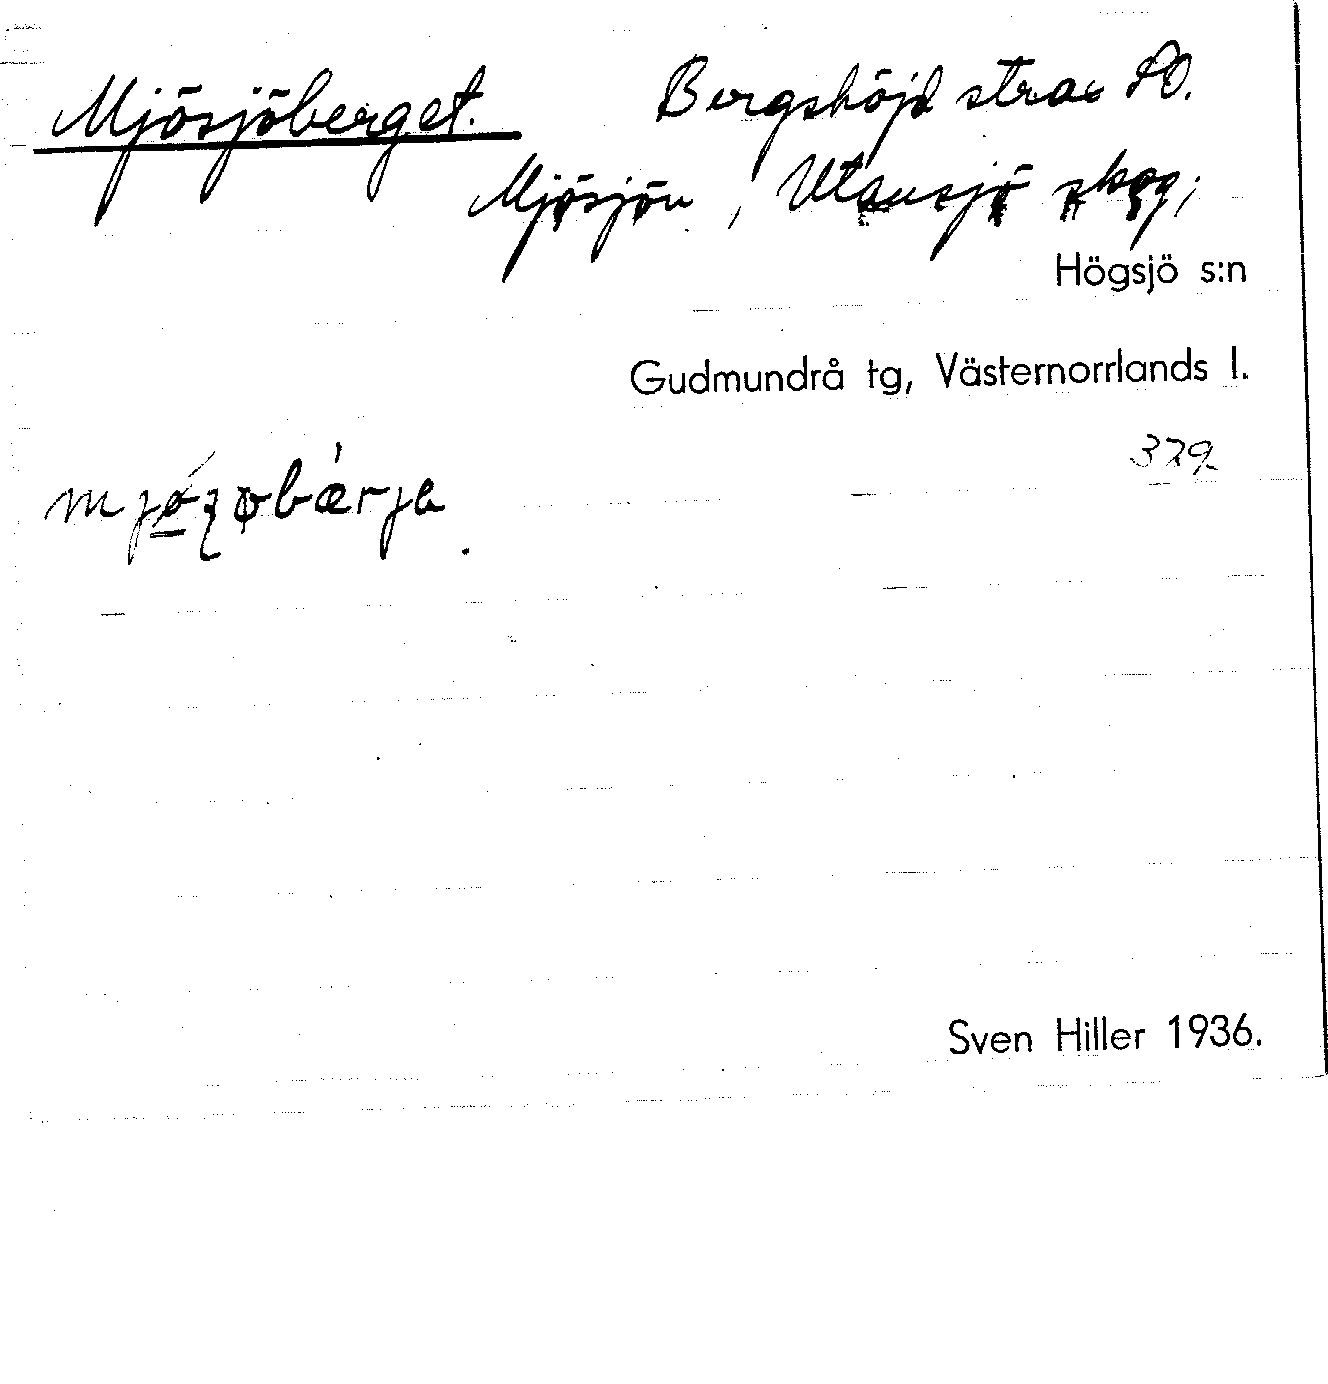 Mjösjöberget. Bergshöjd strax SO.
Mjösjön, Utansjö skog;
Högsjö s:n
Gudmundrå tg, Västernorrlands l.
329
Sven Hiller 1936.